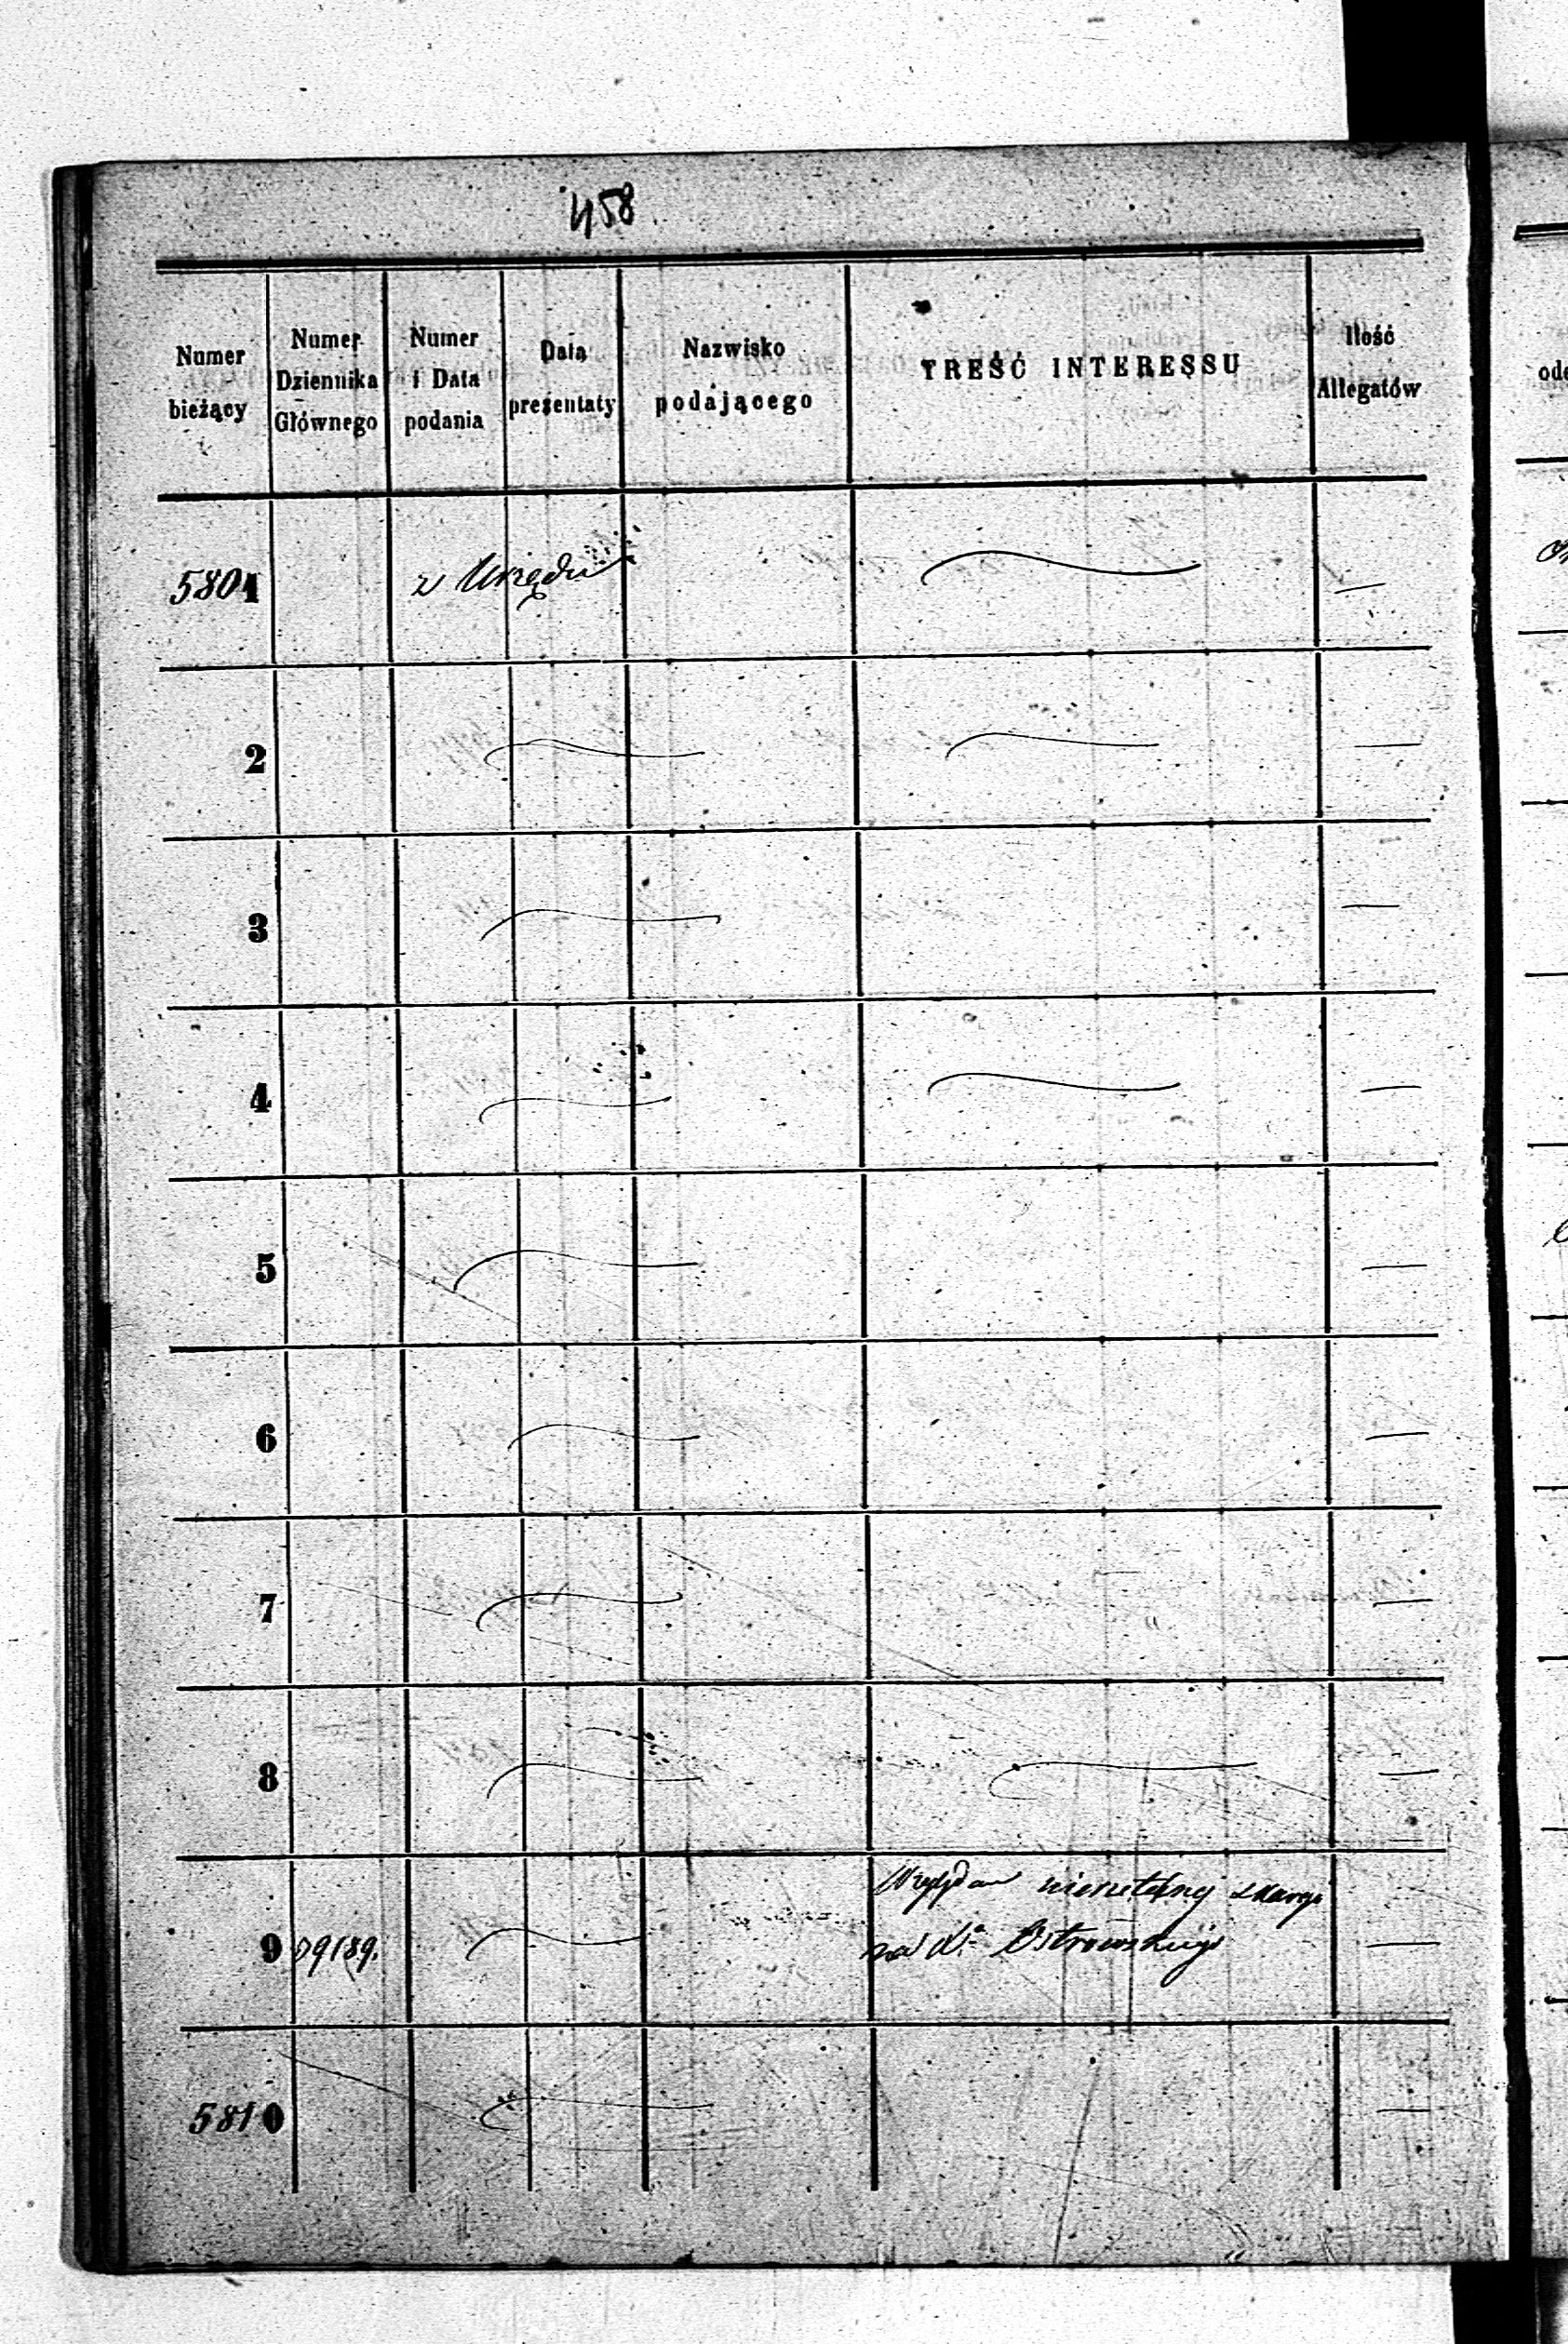 458
Numer bieżący
Numer Dziennika Głównego
Numer i Data podania
Data prezentaty
Nazwisko podającego
TREŚĆ INTERESSU
Ilość Allegatów
5801 z Urzędu
2
3
4
5
6
7
8
9 na Ostrowskiego
5810